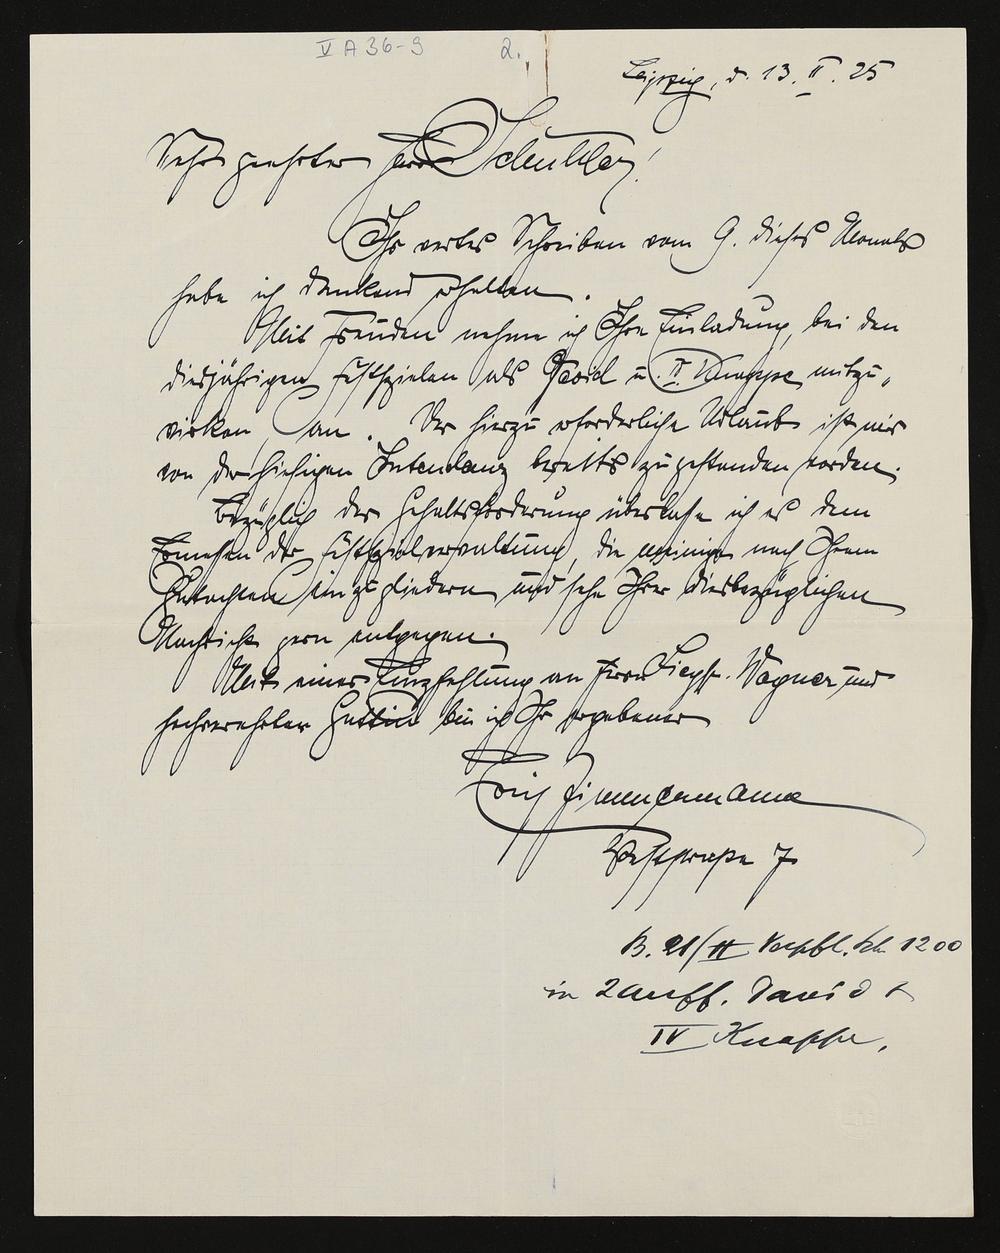 V A 36-9 2.
Leipzig, d. 13. II. 25
Sehr geehrter Herr Schuler!
Ihr wertes Schreiben vom 9. dieses Monats
habe ich dankend erhalten.
Mit Freuden nehme ich Ihre Einladung, bei den
diesjährigen Festspielen als David u. II. Knappe mitzu-
wirken, an. Der hierzu erforderliche Urlaub ist mir
von der hiesigen Intendanz bereits zugestanden worden.
Bezüglich der Gehaltsforderung überlasse ich es dem
Ermessen der Festspielverwaltung, die meinige nach Ihrem
Gutachten einzugliedern und sehe Ihrer diesbezüglichen
Nachricht gern entgegen.
Mit einer Empfehlung an Herrn Siegfr. Wagner und
hochverehrter Gattin bin ich Ihr ergebener
Erich Zimmermann
Weststrasse 7
B. 21/II 1200
in 2 Auff. David &
IV Knappe.